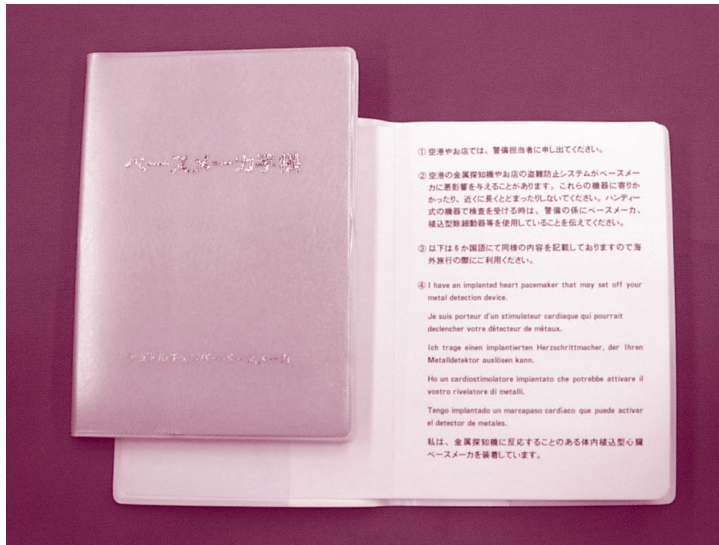 ペースメーカ手帳
① 空港やお店では、警備担当者に申し出てください。
② 空港の金属探知機やお店の盗難防止システムがペースメー
カに悪影響を与えることがあります。これらの機器に寄りか
かったり、近くに長くとどまったりしないでください。ハンディー
式の機器で検査を受ける時は、警備の係にペースメーカ、
植込型除細動器等を使用していることを伝えてください。
③ 以下は6か国語にて同様の内容を記載しておりますので海
外旅行の際にご利用ください。
④ I have an implanted heart pacemaker that may set off your
metal detection device.
Je suis porteur d'un stimulateur cardiaque qui pourrait
declencher votre détecteur de métaux.
Ich trage einen implantierten Herzschrittmacher, der Ihren
Metalldetektor auslösen kann.
Ho un cardiostimolatore impiantato che potrebbe attivare il
vostro rivelatore di metalli.
Tengo implantado un marcapaso cardiaco que puede activar
el detector de metales.
私は、金属探知機に反応することのある体内植込型心臓
ペースメーカを装着しています。